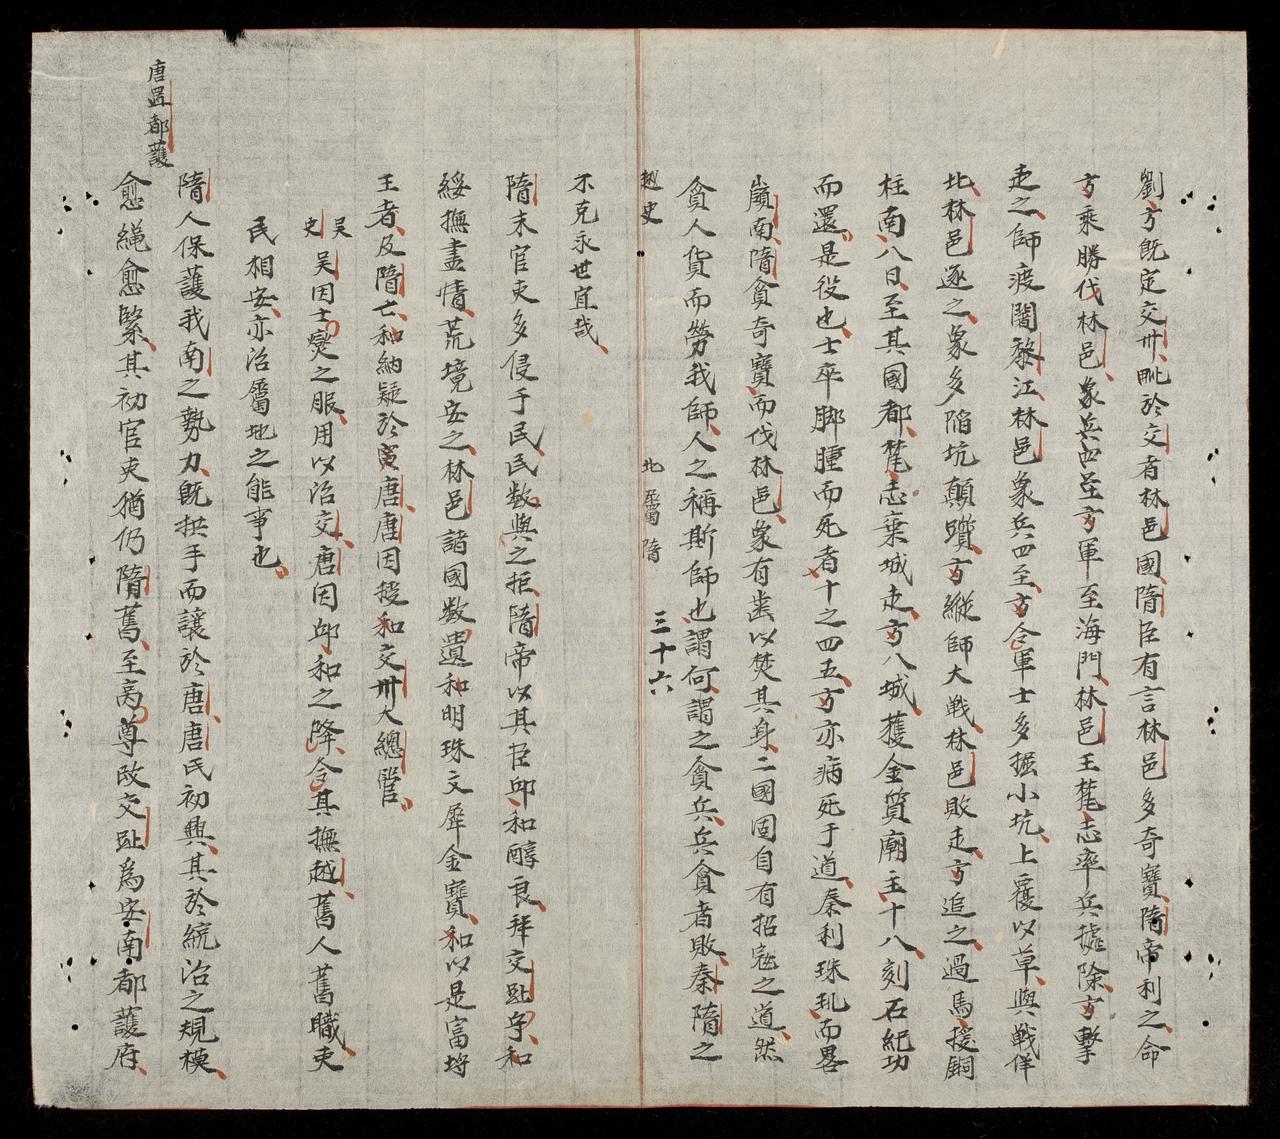 劉方既定交州毗於交者林邑國隋臣有言林邑多奇寶隋帝利之命
方乘勝伐林邑象兵四至方軍至海門林邑王梵志率兵據除方擊
走之師渡闍黎江林邑象兵四至方令軍士多掘小坑上覆以草與戰佯
北林邑逐之象多陷坑顛躓方縱師大戰林邑敗走方追之過馬援銅
柱南八日至其國都梵志棄城走方入城獲金質廟主十八刻石紀功
而還是役也士卒脚腫而死者十之四五方亦病死于道秦利珠璣而畧
嶺南隋貪奇寶而伐林邑象有齒以焚其身二國固自有招寇之道然
貪人貨而勞我師人之稱斯師也謂何謂之貪兵兵貪者敗秦隋之
越史 北屬隋 三十六
不克永世宜哉
隋末官吏多侵于民民数與之拒隋帝以其臣邱和醇良拜交趾守和
綏撫盡情荒境安之林邑諸國数遺和明珠文犀金寶和以是富埒
王者及隋亡和納疑於寅唐唐因授和交州大總管
吴史 吴因士爕之服用以治交唐因邱和之降令其撫越舊人舊職吏
民相安亦治屬地之能事也
隋人保護我南之勢力既拱手而讓於唐唐氏初興其於統治之規模
唐置都護
愈繩愈緊其初官吏猶仍隋舊至高尊改交趾為安南都護府